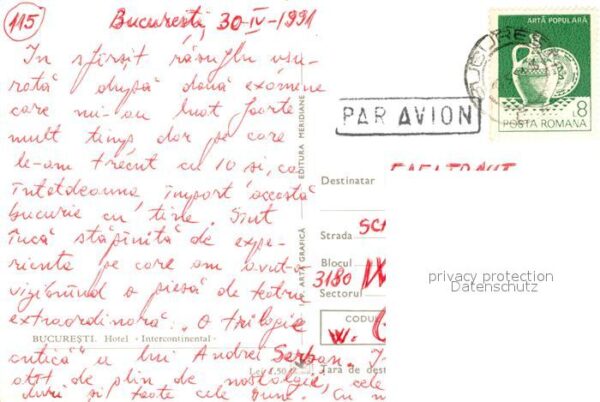 115
București, 30-IV-1991
In sfîrșit răsuflu ușu-
rată după două examene
care mi-au luat foarte
mult timp dar pe care
le-am trecut cu 10 și, ca
întotdeauna împart această
bucurie cu tine. Sînt
încă stăpînită de expe-
riența pe care am avut-o
vizionînd o piesă de teatru
extraordinară: „O trilogie
antică" a lui Andrei Șerban.
atît de plin de nostalgie, cele
durii și toate cele bune. Cu
BUCUREȘTI. Hotel «Intercontinental»
Lei 1,50
EDITURA MERIDIANE
ARTA GRAFICĂ
PAR AVION
ARTĂ POPULARĂ
8L
POSTA ROMANA
BUCURES
Destinatar
Strada
SC
Blocul
3180
Sectorul
CODUL
W.
Țara de dest
privacy protection
Datenschutz